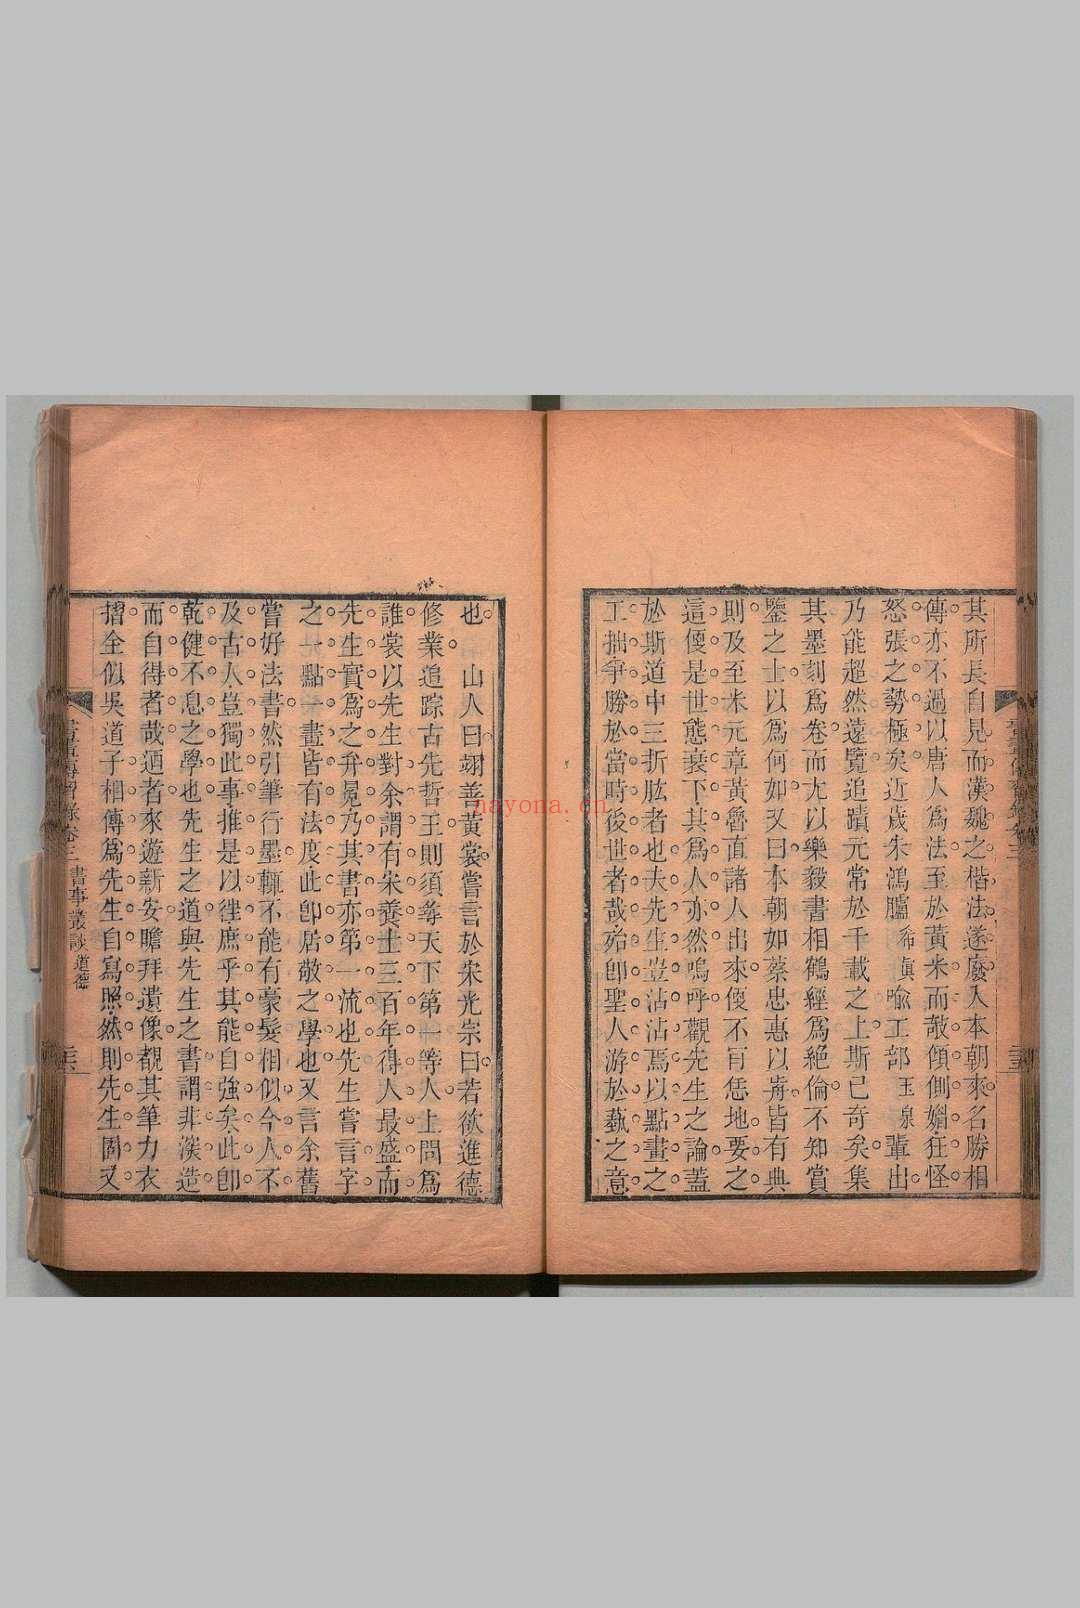 其所長自見而漢魏之楷法遂廢入本朝來名勝相
傳亦不過以唐人爲法至於黃米而欹傾側媚狂怪
怒張之勢極矣近歲朱鴻臚希槙喻工部玉泉輩出
乃能超然遠覽追蹟元常於千載之上斯已奇矣集
其墨刻爲卷而尤以樂毅書相鶴經爲絕倫不知賞
鑒之士以爲何如又曰本朝如蔡忠惠以前皆有典
則及至米元章黃魯直諸人出來便不肎恁地要之
這便是世態衰下其爲人亦然嗚呼觀先生之論蓋
於斯道中三折肱者也夫先生豈沾沾焉以點畫之
工拙爭勝於當時後世者哉殆卽聖人游於藝之意
也 山人曰翊善黃裳嘗言於朱光宗曰若欲進德
修業追踪古先哲王則須尋天下第一等人上問爲
誰裳以先生對余謂有宋養士三百年得人最盛而
先生實爲之弁冕乃其書亦第一流也先生嘗言字
之一點一畫皆有法度此卽居敬之學也又言余舊
嘗好法書然引筆行墨輒不能有豪髮相似今人不
及古人豈獨此事推是以徃庶乎其能自強矣此卽
乾健不息之學也先生之道與先生之書謂非深造
而自得者哉迺者來遊新安瞻拜遺像覩其筆力衣
摺全似吳道子相傳爲先生自寫照然則先生固又
書畫傳習錄卷三 書事叢談 道德
nayona.cn